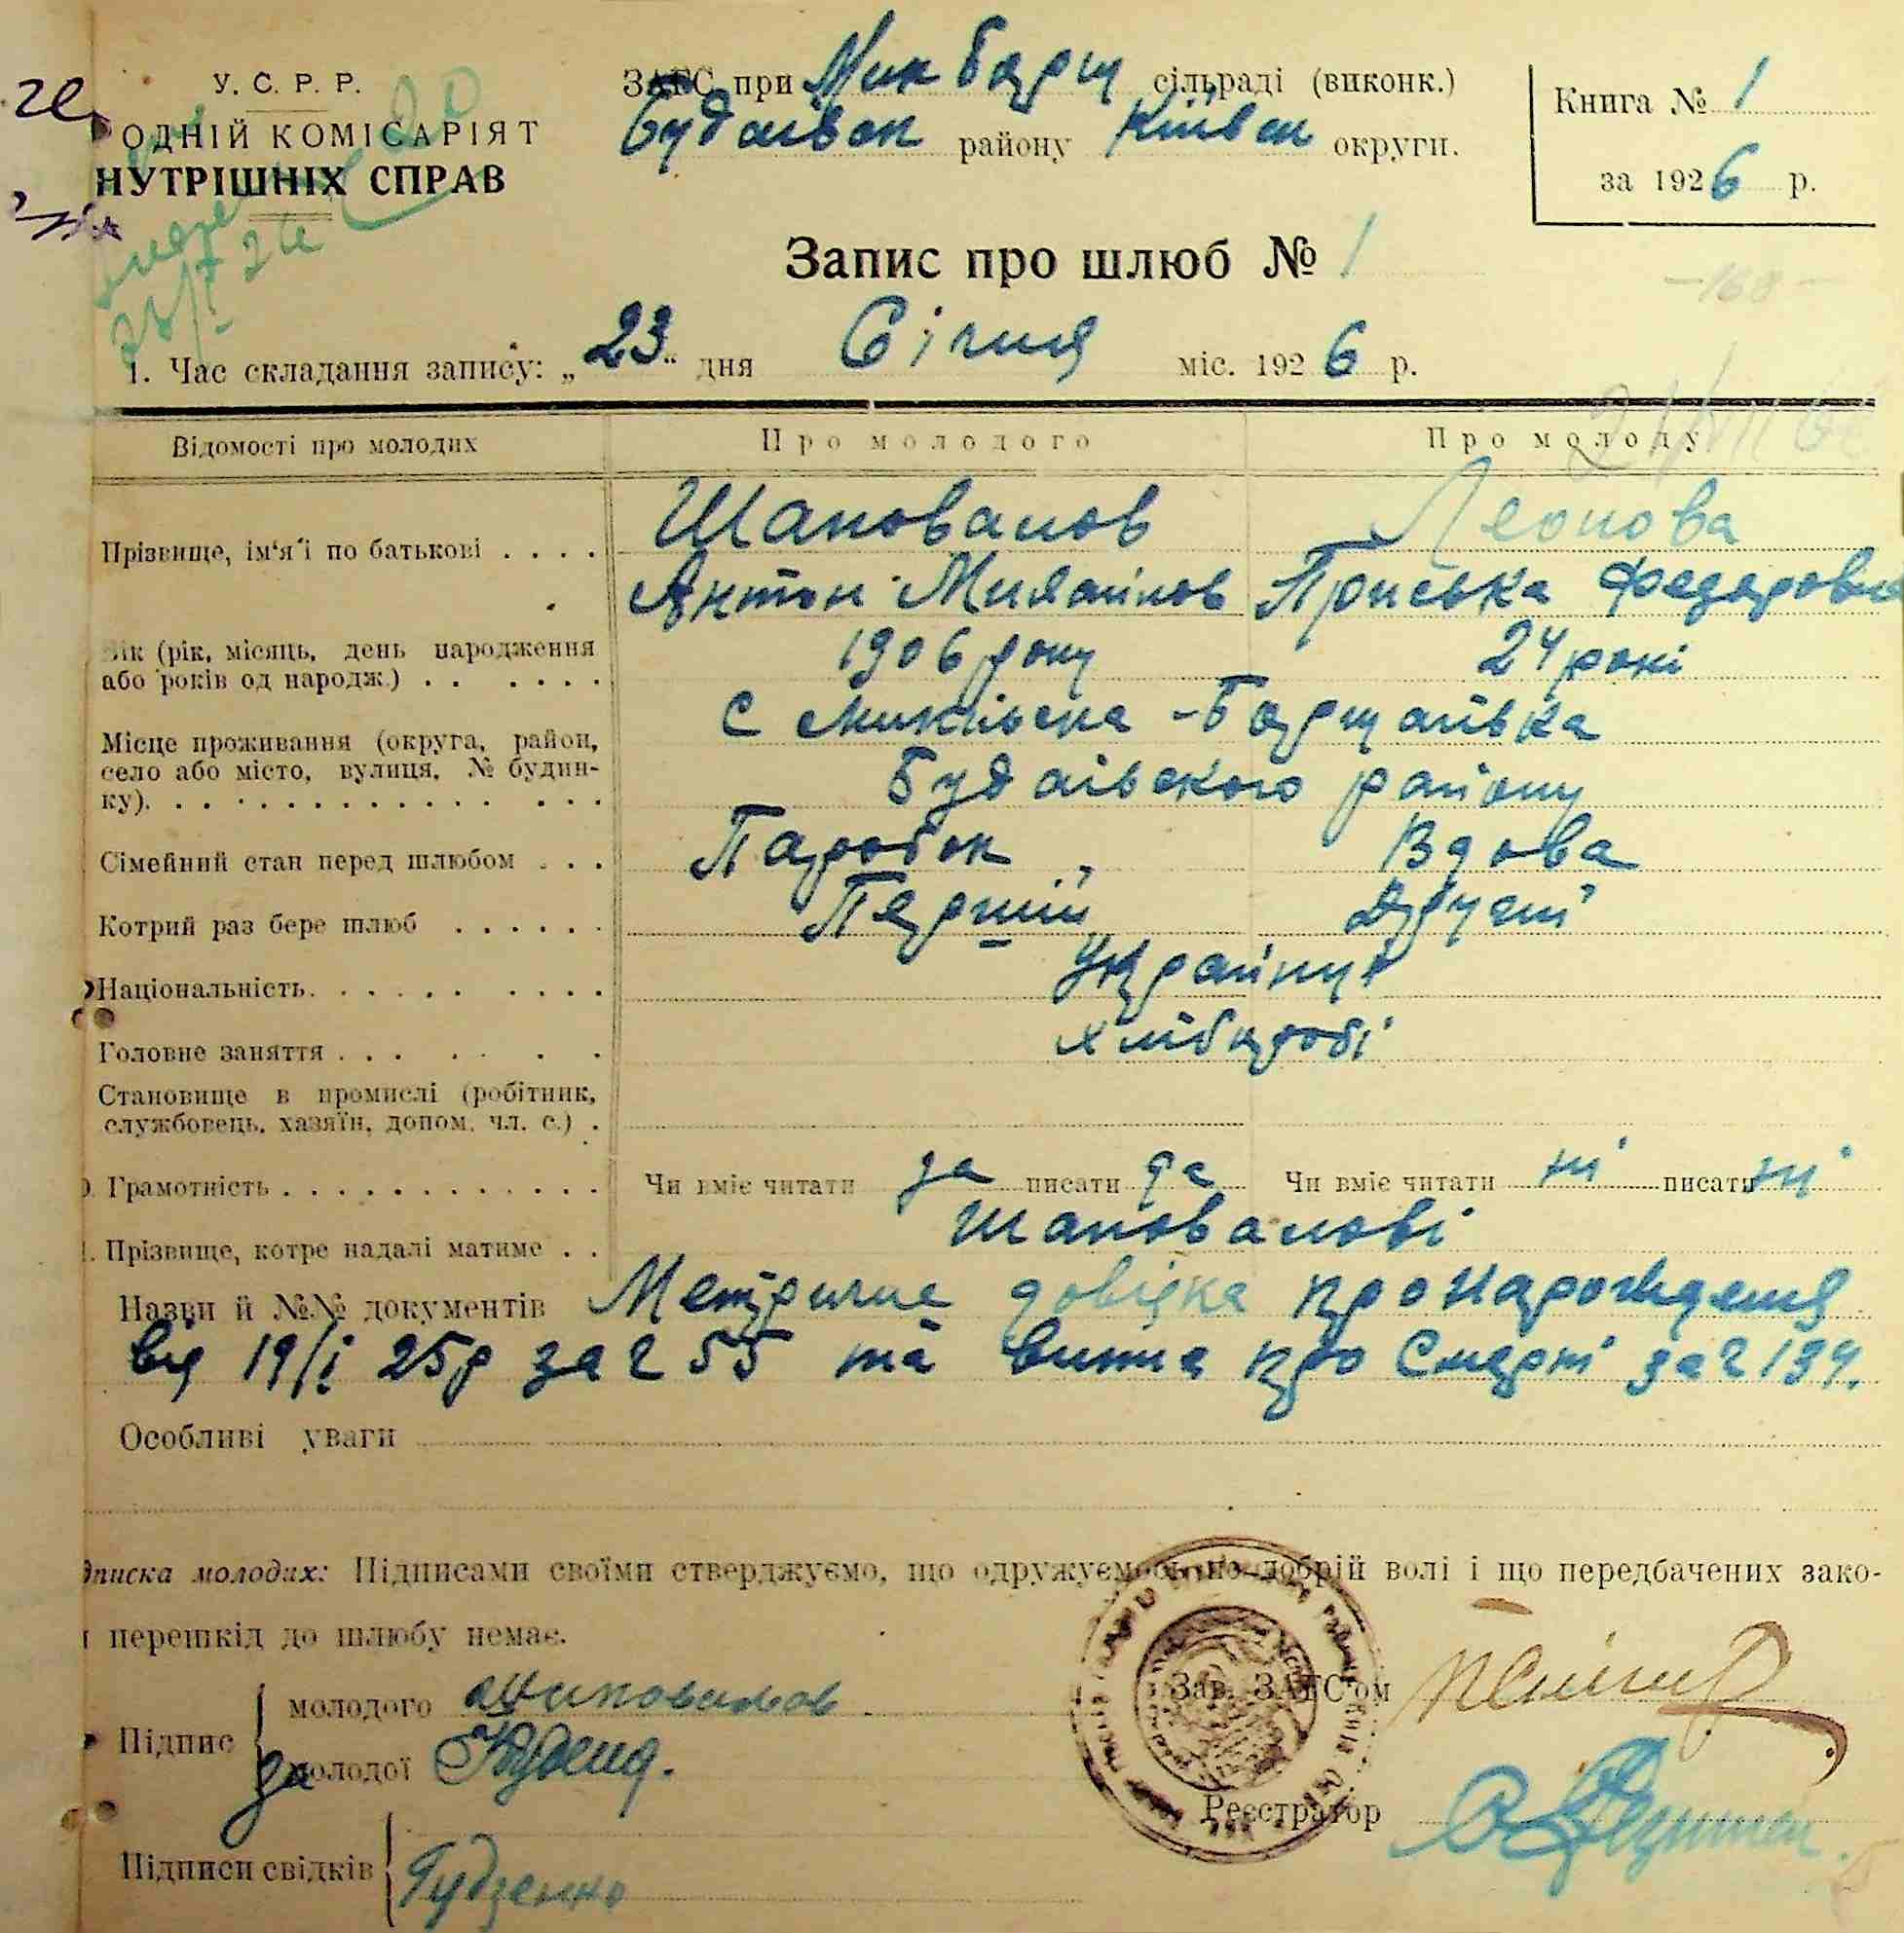 У. С. Р. Р.
ОДНІЙ КОМІСАРІЯТ
НУТРІШНІХ СПРАВ
ЗАГС при Мик Борщ сільраді (виконк.)
Будаївск району Київск округи.
Книга № 1
за 1926 р.
Запис про шлюб № 1
-168-
1. Час складання запису: „23" дня Січня міс. 1926 р.
Відомості про молодих Про молодого Про молоду
Прізвище, ім'я і по батькові . . . . Шаповалов Леонова
Антон МихайловПриська Федоровна
Вік (рік, місяць, день народження
або років од народж.) . . . . . . 1906 року 24 рокі
Місце проживання (округа, район,
село або місто, вулиця, № будин-
ку). . . . . . . . . . . . . . .
с Микільська-Борщагівка
Будаївского району
Сімейний стан перед шлюбом . . . Паробок Вдова
Котрий раз бере шлюб . . . . . . Перший Другий
Національність. . . . . . . . . . Українці
Головне заняття . . . . . . . Хлібороби
Становище в промислі (робітник,
службовець, хазяїн, допом. чл. с.) .
Грамотність . . . . . . . . . . . . Чи вміє читати да писати да Чи вміє читати ні писати ні
Прізвище, котре надалі матиме . . Шаповалові
Назви й №№ документів Метрична довідка про Народження
від 19/I 25р за № 55 та Витяг про Смерть за № 134.
Особливі уваги
дписка молодих: Підписами своїми стверджуємо, що одружуємось по добрій волі і що передбачених зако-
перешкід до шлюбу немає.
Підпис
молодого Шаповалов
за молодої
Зав. ЗАГС'ом
Реєстратор
Підписи свідків Гудзенко